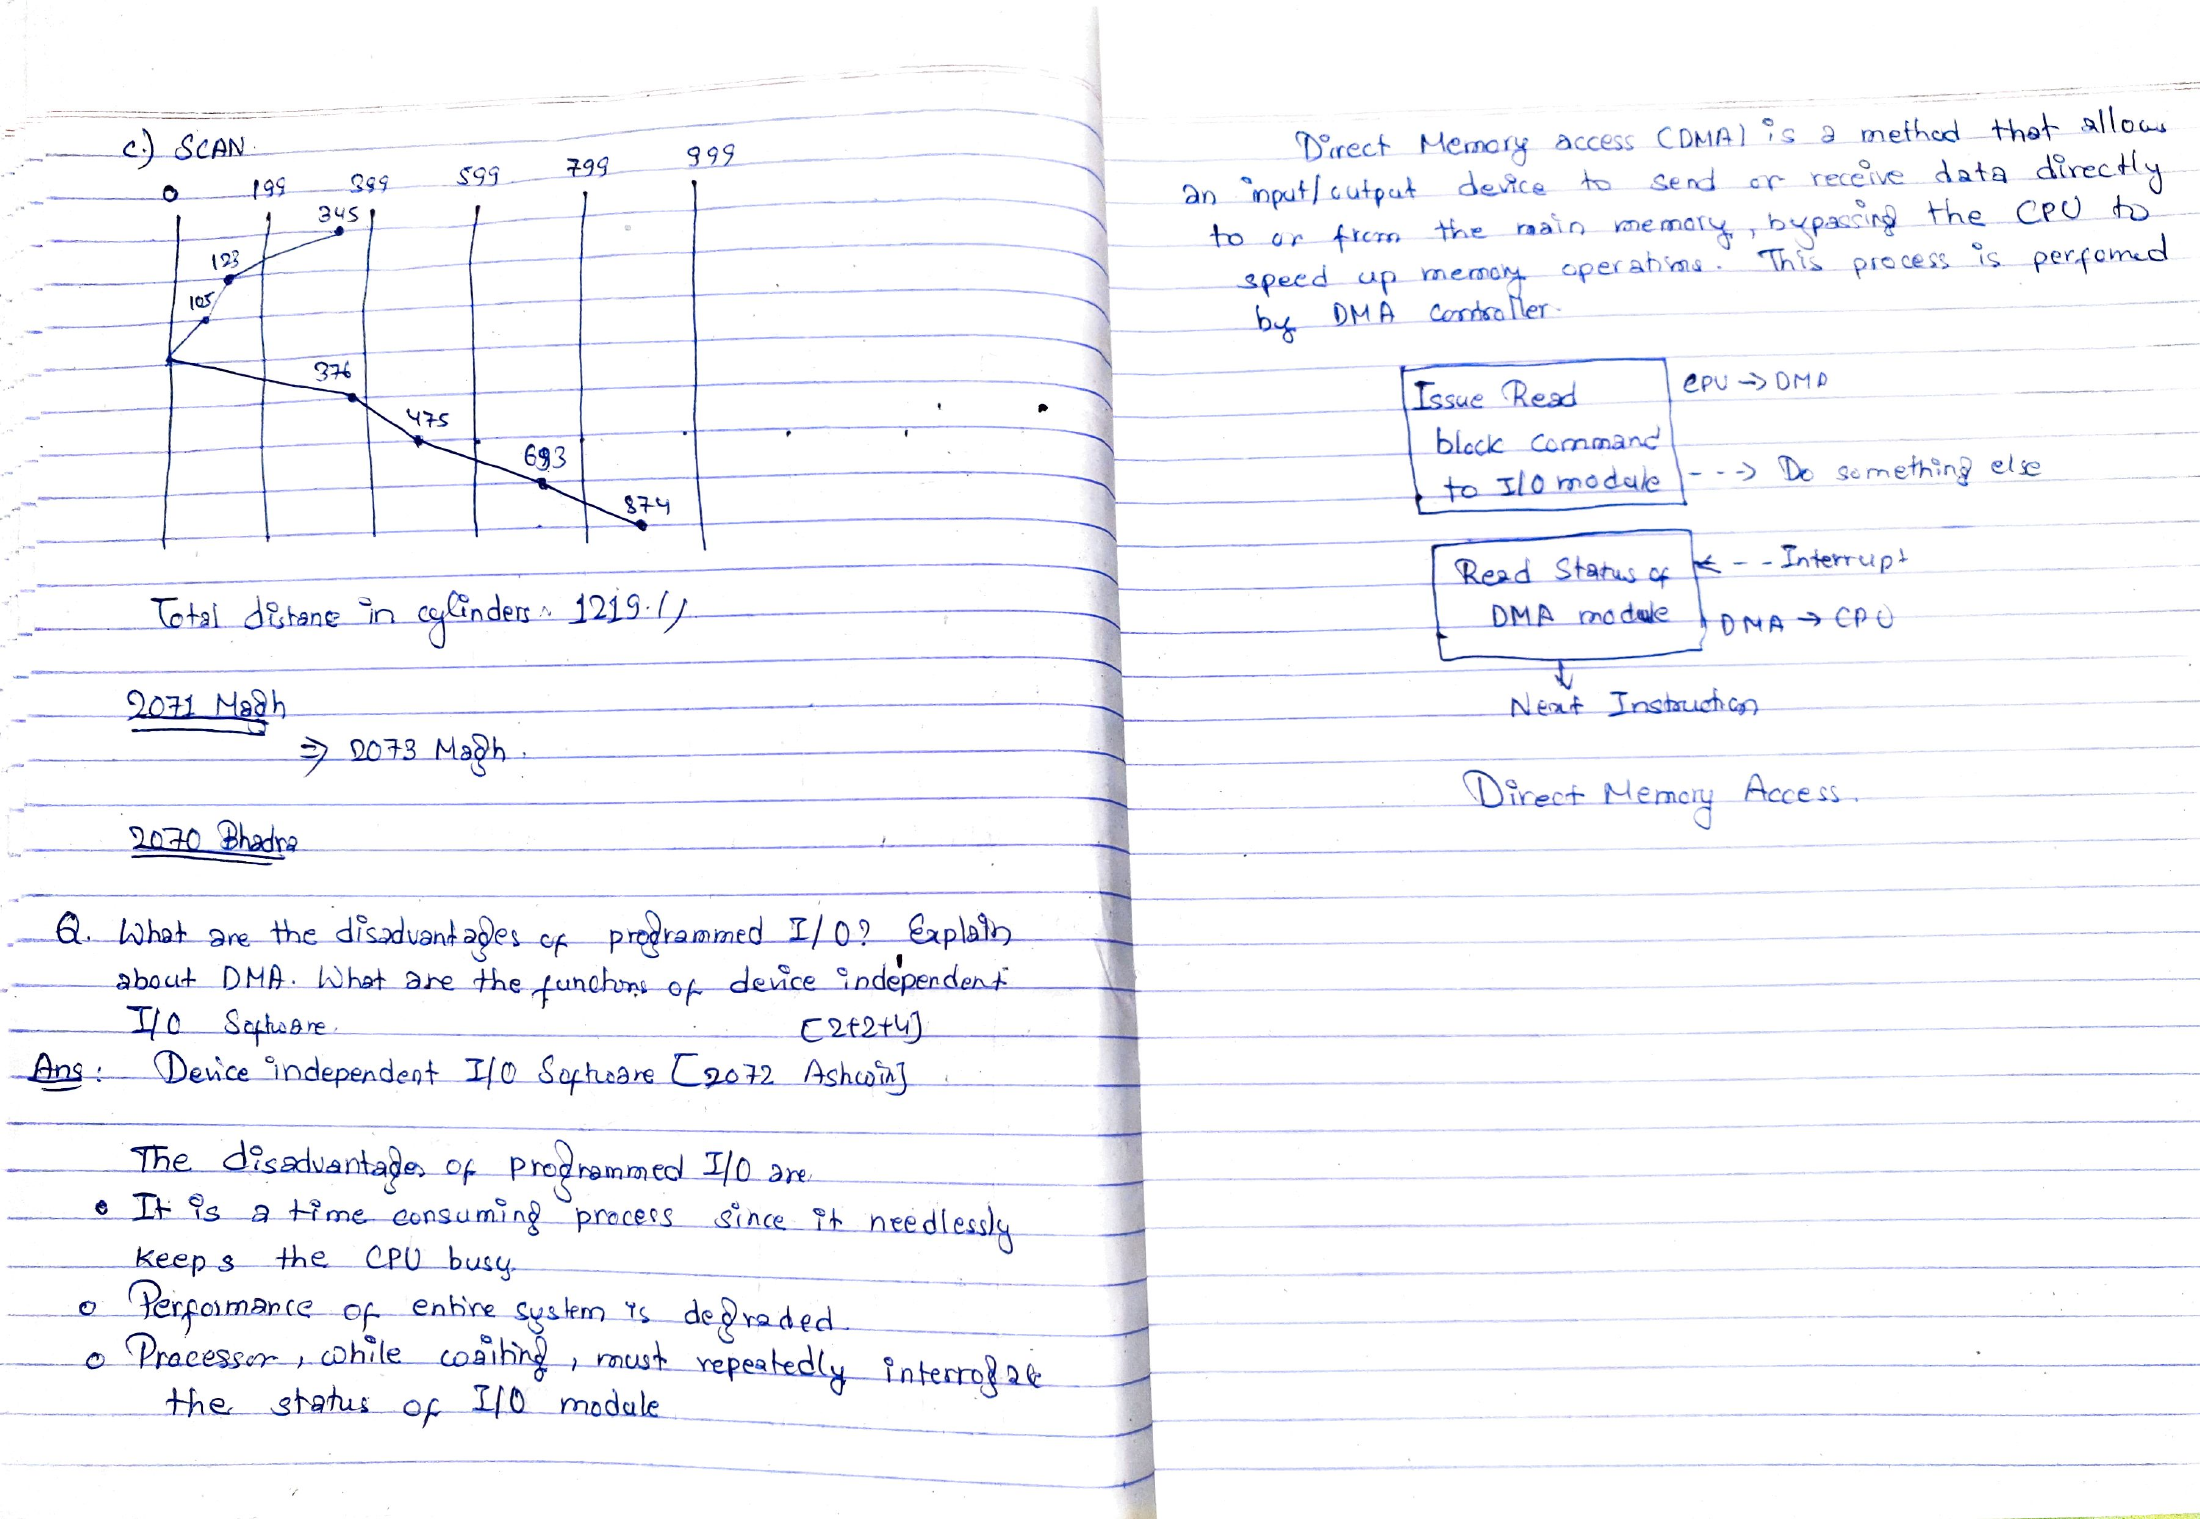 c.) SCAN
0 199 399 599 799 999
345
123
105
376
475
693
874
Total distane in cylinders = 1219.//
2071 Magh
⇒ 2073 Magh.
2070 Bhadra
Q. What are the disadvantages of programmed I/O? Explain
about DMA. What are the functions of device independent
I/O Software. [2+2+4]
Ans: Device independent I/O Software [2072 Ashwin]
The disadvantages of programmed I/O are
• It is a time consuming process since it needlessly
keeps the CPU busy.
o Performance of entire system is degraded.
o Processor, while waiting, must repeatedly interrogate
the status of I/O module
Direct Memory access (DMA) is a method that allows
an input/output device to send or receive data directly
to or from the main memory, bypassing the CPU to
speed up memory operations. This process is perfomed
by DMA controller.
Issue Read CPU → DMA
block command
to I/O module ---> Do something else
Read Status of <--- Interrupt
DMA module DMA → CPU
Next Instruction
Direct Memory Access.